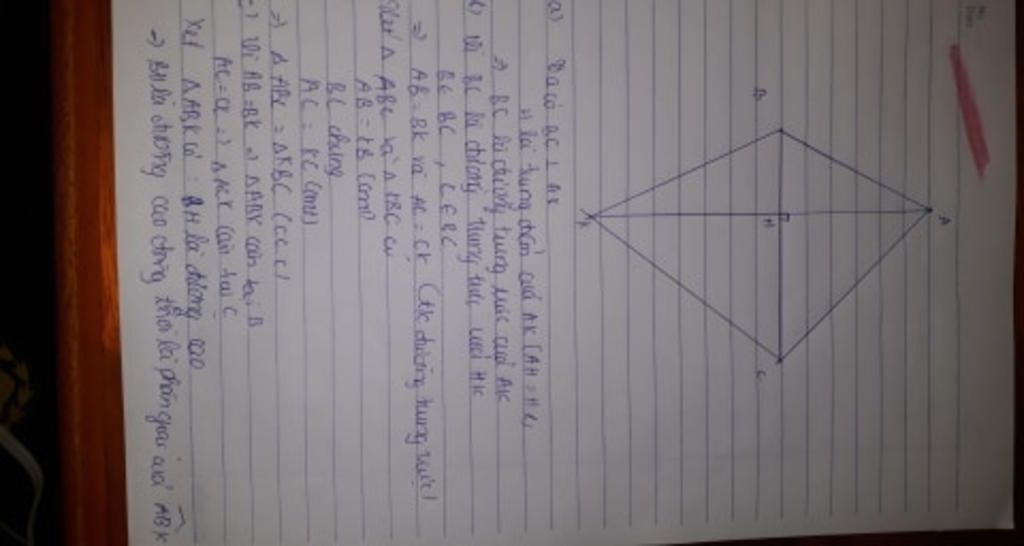 A
B
H
C
K
a) Ta có BC ⊥ AK
H là trung điểm của AK (AH = HK)
=> BC là đường trung trực của AK
b) Vì BC là đường trung trực của AK
B ∈ BC, C ∈ BC
=> AB = BK và AC = CK (t/c đường trung trực)
Xét Δ ABC và Δ KBC có
AB = KB (cmt)
BC chung
AC = KC (cmt)
=> Δ ABC = Δ KBC (c.c.c)
c) Vì AB = BK => Δ ABK cân tại B
AC = CK => Δ ACK cân tại C
Xét Δ ABK có: BH là đường cao
=> BH là đường cao đồng thời là phân giác của ABK